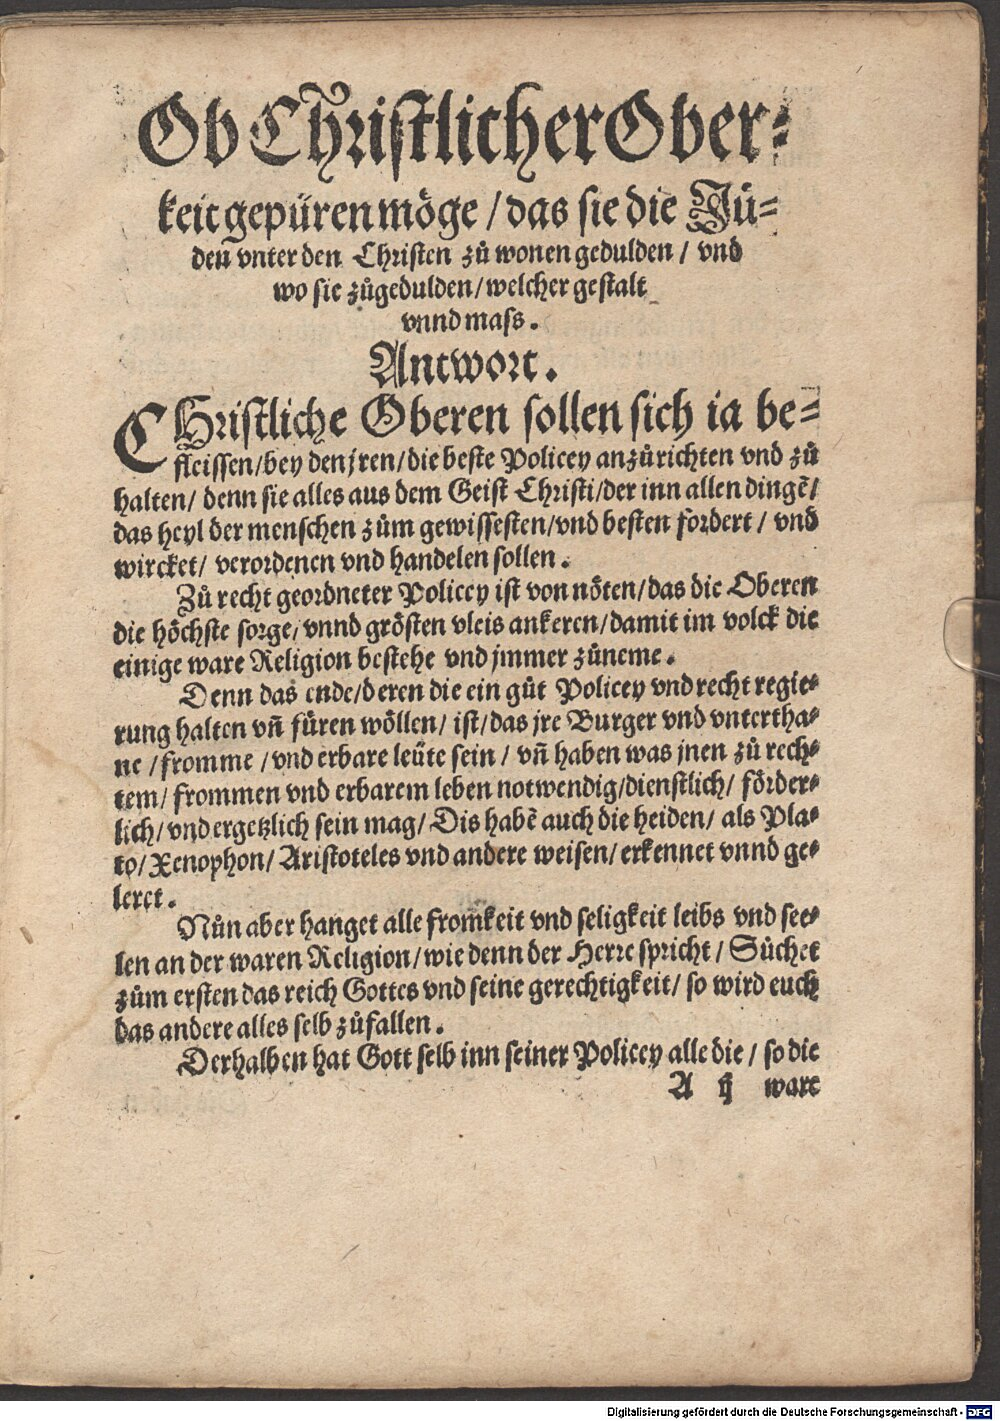 Ob Christlicher Ober⸗
keit gepüren möge / das sie die Jü⸗
den vnter den Christen zů wonen gedulden / vnd
wo sie zůgedulden / welcher gestalt
vnnd mass.
Antwort.
CHristliche Oberen sollen sich ia be⸗
fleissen / bey den jren / die beste Policey anzůrichten vnd zů
halten / denn sie alles aus dem Geist Christi / der inn allen dingẽ /
das heyl der menschen zům gewissesten / vnd besten fordert / vnd
wircket / verordenen vnd handelen sollen.
Zů recht geordneter Policey ist von nöten / das die Oberen
die höchste sorge / vnnd grösten vleis ankeren / damit im volck die
einige ware Religion bestehe vnd jmmer zůneme.
Denn das ende / deren die ein gůt Policey vnd recht regie⸗
rung halten vñ füren wöllen / ist / das jre Burger vnd vntertha⸗
ne / fromme / vnd erbare leüte sein / vñ haben was jnen zů rech⸗
tem / frommen vnd erbarem leben notwendig / dienstlich / förder⸗
lich / vnd ergetzlich sein mag / Dis habẽ auch die heiden / als Pla⸗
to / Xenophon / Aristoteles vnd andere weisen / erkennet vnnd ge⸗
leret.
Nůn aber hanget alle fromkeit vnd seligkeit leibs vnd see⸗
len an der waren Religion / wie denn der Herre spricht / Sůchet
zům ersten das reich Gottes vnd seine gerechtigkeit / so wird euch
das andere alles selb zůfallen.
Derhalben hat Gott selb inn seiner Policey alle die / so die
A ij ware
Digitalisierung gefördert durch die Deutsche Forschungsgemeinschaft - DFG